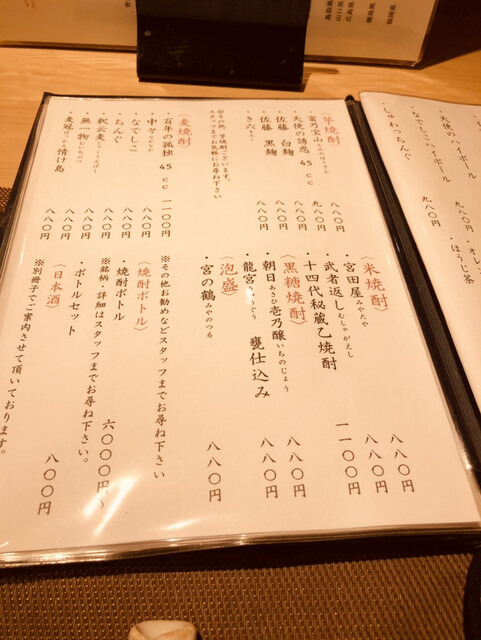 ・天使のハイボール 九八〇円
・なでしこハイボール 九八〇円
・しゅわっちんぐ
・オレ
・ほうじ茶
〈芋焼酎〉
・富乃宝山 とみのほうざん 八八〇円
・天使の誘惑 45cc 九八〇円
・佐藤 白麹 八八〇円
・佐藤 黒麹 八八〇円
・き六 八八〇円
※その他、芋焼酎ございます。
スタッフまでお気軽にお尋ね下さい
〈麦焼酎〉
・百年の孤独 45cc 一一〇〇円
・中々 なかなか 八八〇円
・なでしこ 八八〇円
・ちんぐ 八八〇円
・釈云麦 八八〇円
・無一物 むいちぶつ 八八〇円
・麦冠 情け島 八八〇円
〈米焼酎〉
・宮田屋 みやたや 八八〇円
・武者返し むしゃがえし 八八〇円
・十四代秘蔵乙焼酎 一一〇〇円
〈黒糖焼酎〉
・朝日 あさひ 壱乃醸 いちのじょう 八八〇円
・龍宮 りゅうぐう 甕仕込み 八八〇円
〈泡盛〉
・宮の鶴 みやのつる 八八〇円
※その他お勧めなどスタッフまでお尋ね下さい
〈焼酎ボトル〉
・焼酎ボトル 六〇〇〇円〜
※銘柄・詳細はスタッフまでお尋ね下さい。
・ボトルセット 八〇〇円
〈日本酒〉
※別冊子でご案内させて頂いております。